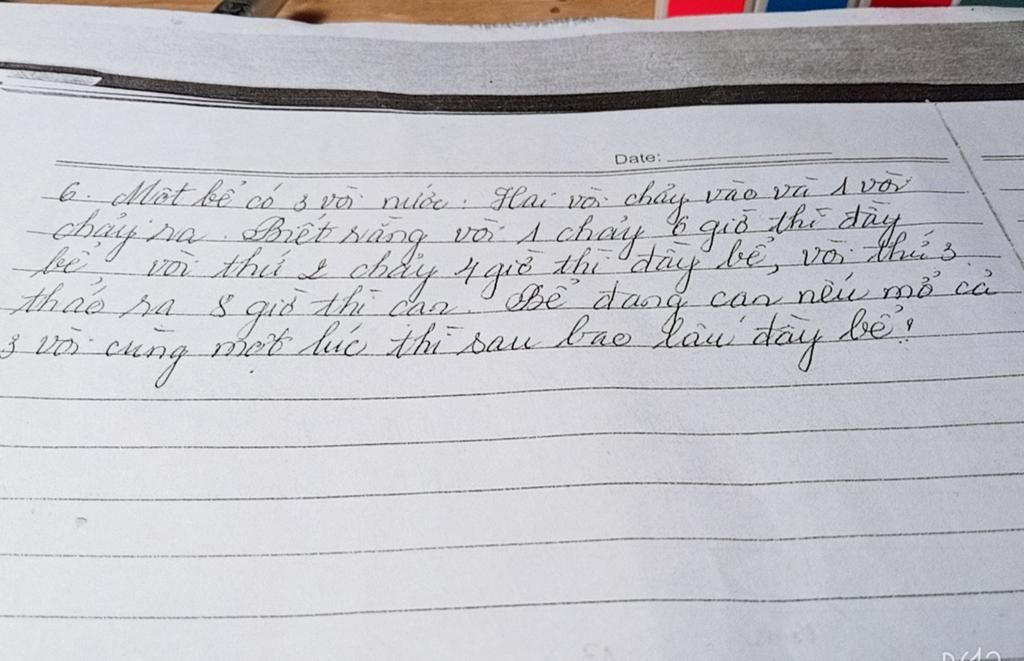 Date:
6. Một bể có 3 vòi nước. Hai vòi chảy vào và 1 vòi
chảy ra. Biết rằng vòi 1 chảy 6 giờ thì đầy
bể, vòi thứ 2 chảy 4 giờ thì đầy bể, vòi thứ 3
tháo ra 8 giờ thì cạn. Bể đang cạn nếu mở cả
3 vòi cùng một lúc thì sau bao lâu đầy bể?